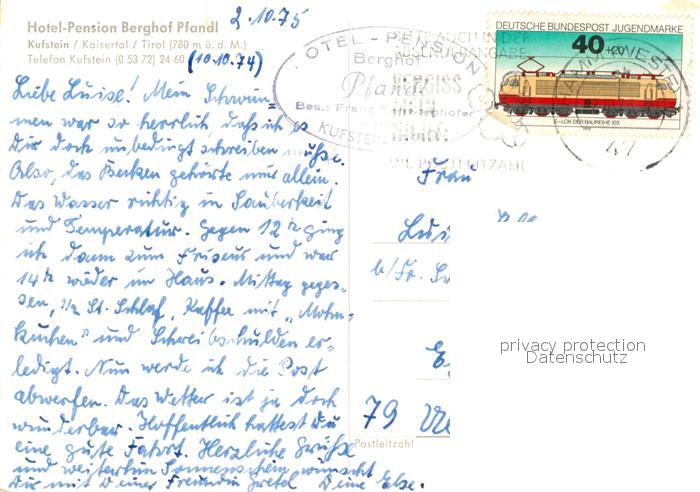 2.10.75
Hotel-Pension Berghof Pfandl
Kufstein / Kaisertal / Tirol (780 m ü. d. M.)
Telefon Kufstein (0 53 72) 24 60
(10.10.74)
Liebe Luise! Mein Schwim-
men war so herrlich, daß ich es
Dir doch unbedingt schreiben muß.
Also, das Becken gehörte mir allein.
Das Wasser richtig in Sauberkeit
und Temperatur. Gegen 12 h ging
ich dann zum Friseur und war
14 h wieder im Haus. Mittag geges-
sen, 1/2 St. Schlaf, Kaffee mit „Mohn-
kuchen" und Schreibschulden er-
ledigt. Nun werde ich die Post
abwerfen. Das Wetter ist ja doch
wunderbar. Hoffentlich hattest Du
eine gute Fahrt. Herzliche Grüße
und weiterhin Sonnenschein wünscht
Dir mit Deiner Freundin Gretel Deine Else.
HOTEL-PENSION
Berghof
Pfandl
Bes.: Franz
KUFSTEIN
DEUTSCHE BUNDESPOST JUGENDMARKE
40+20
E-LOK DER BAUREIHE 103
DIE POSTLEITZAHL
Frau
79
Postleitzahl
privacy protection
Datenschutz